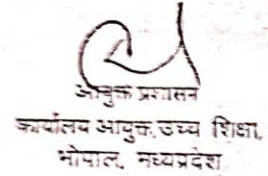 आयुक्त प्रशासन
कार्यालय आयुक्त, उच्च शिक्षा,
भोपाल, मध्यप्रदेश